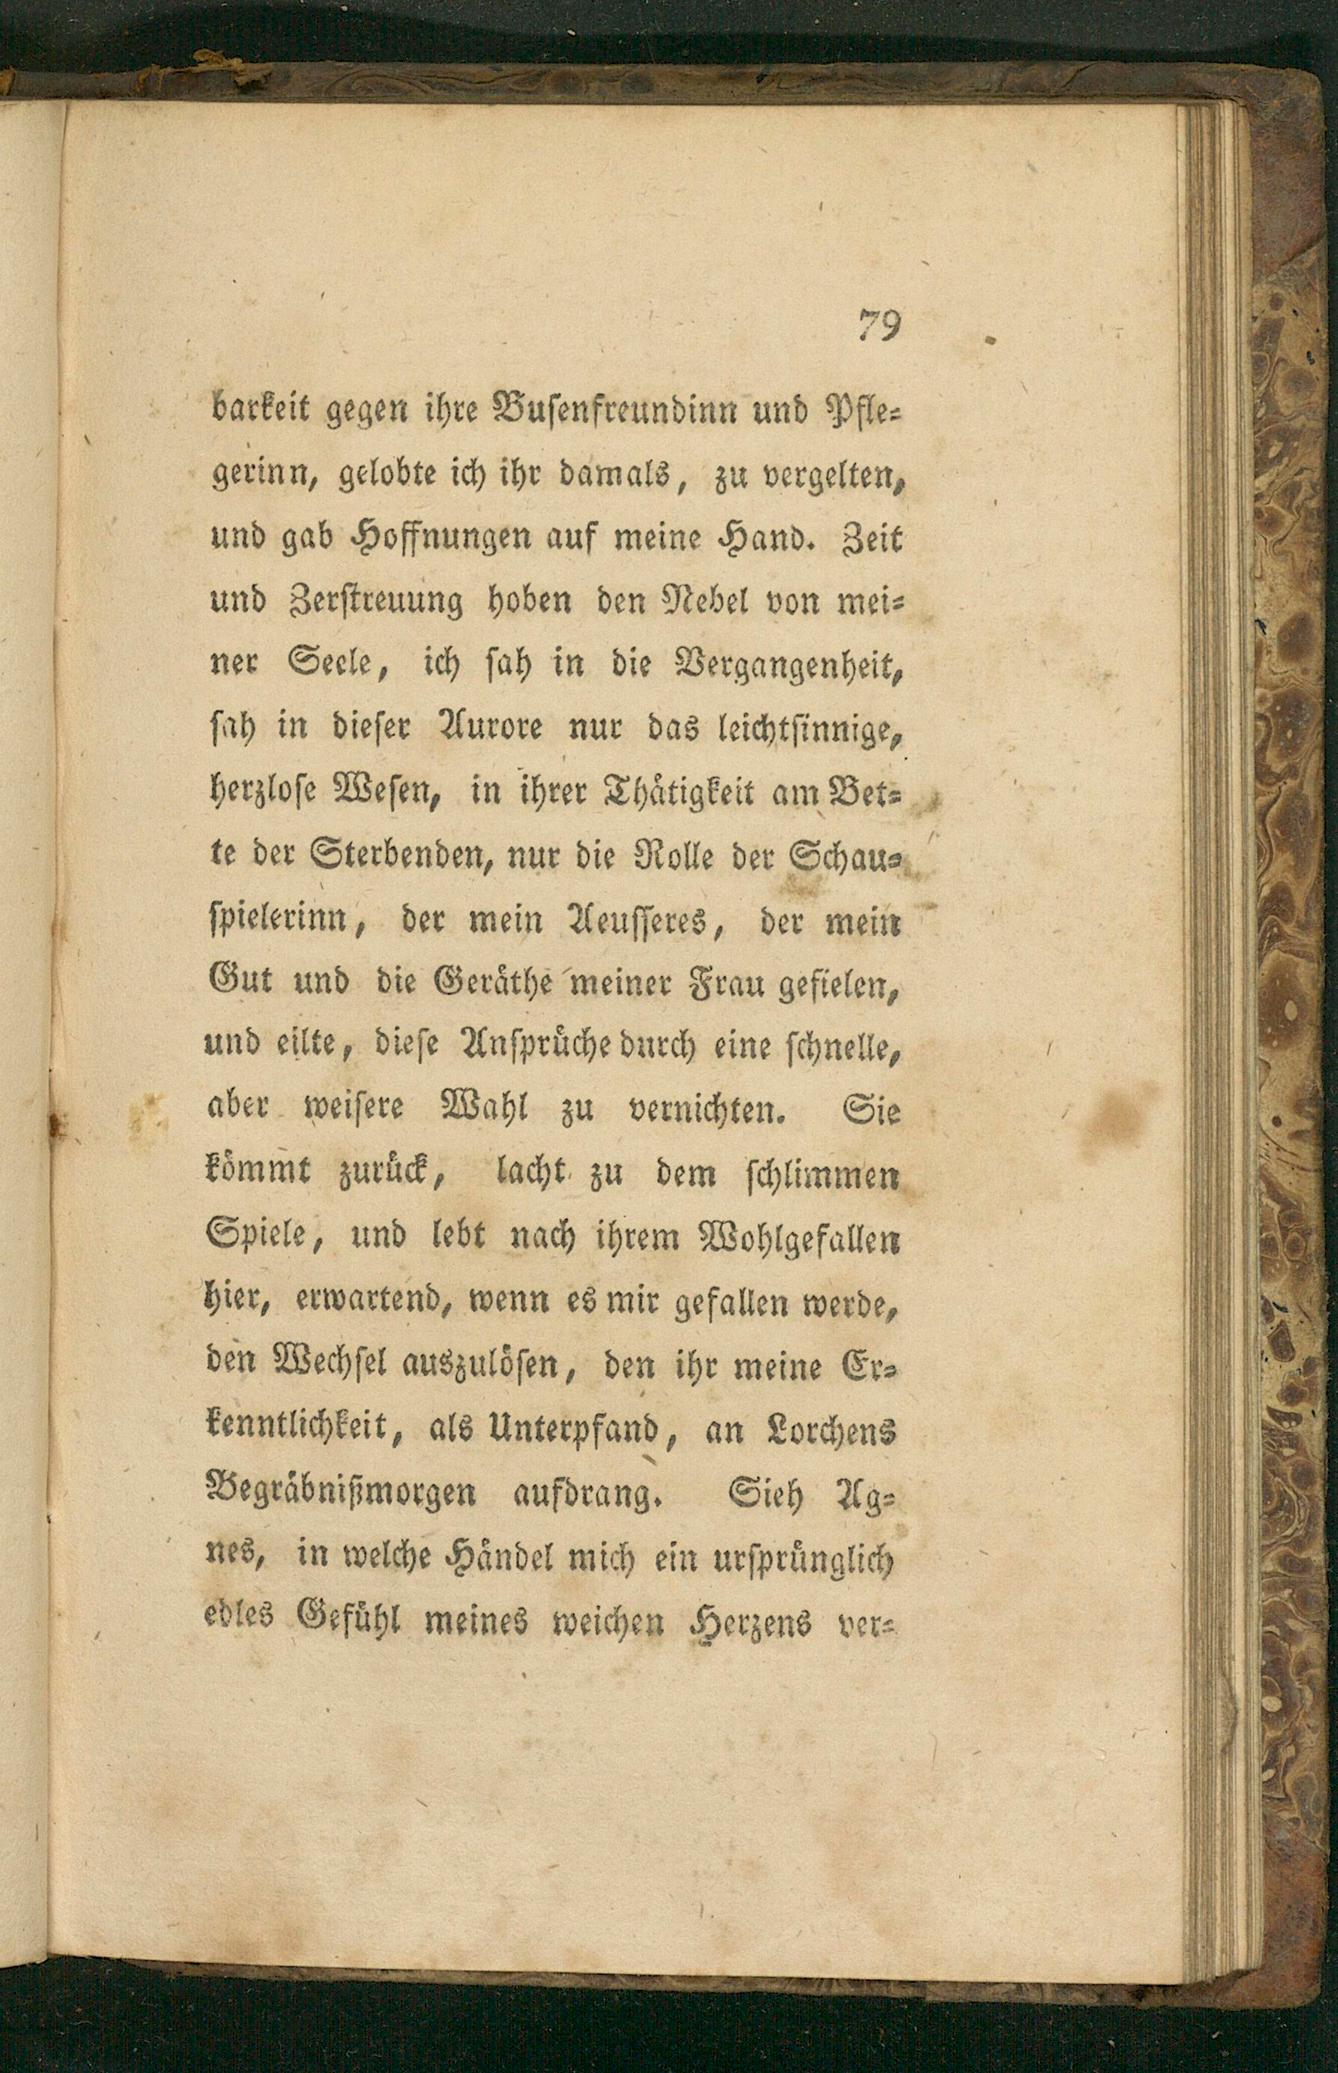 79
barkeit gegen ihre Busenfreundinn und Pfle=
gerinn, gelobte ich ihr damals, zu vergelten,
und gab Hoffnungen auf meine Hand. Zeit
und Zerstreuung hoben den Nebel von mei=
ner Seele, ich sah in die Vergangenheit,
sah in dieser Aurore nur das leichtsinnige,
herzlose Wesen, in ihrer Thätigkeit am Bet=
te der Sterbenden, nur die Rolle der Schau=
spielerinn, der mein Aeusseres, der mein
Gut und die Geräthe meiner Frau gefielen,
und eilte, diese Ansprüche durch eine schnelle,
aber weisere Wahl zu vernichten. Sie
kömmt zurück, lacht zu dem schlimmen
Spiele, und lebt nach ihrem Wohlgefallen
hier, erwartend, wenn es mir gefallen werde,
den Wechsel auszulösen, den ihr meine Er=
kenntlichkeit, als Unterpfand, an Lorchens
Begräbnißmorgen aufdrang. Sieh Ag=
nes, in welche Händel mich ein ursprünglich
edles Gefühl meines weichen Herzens ver=